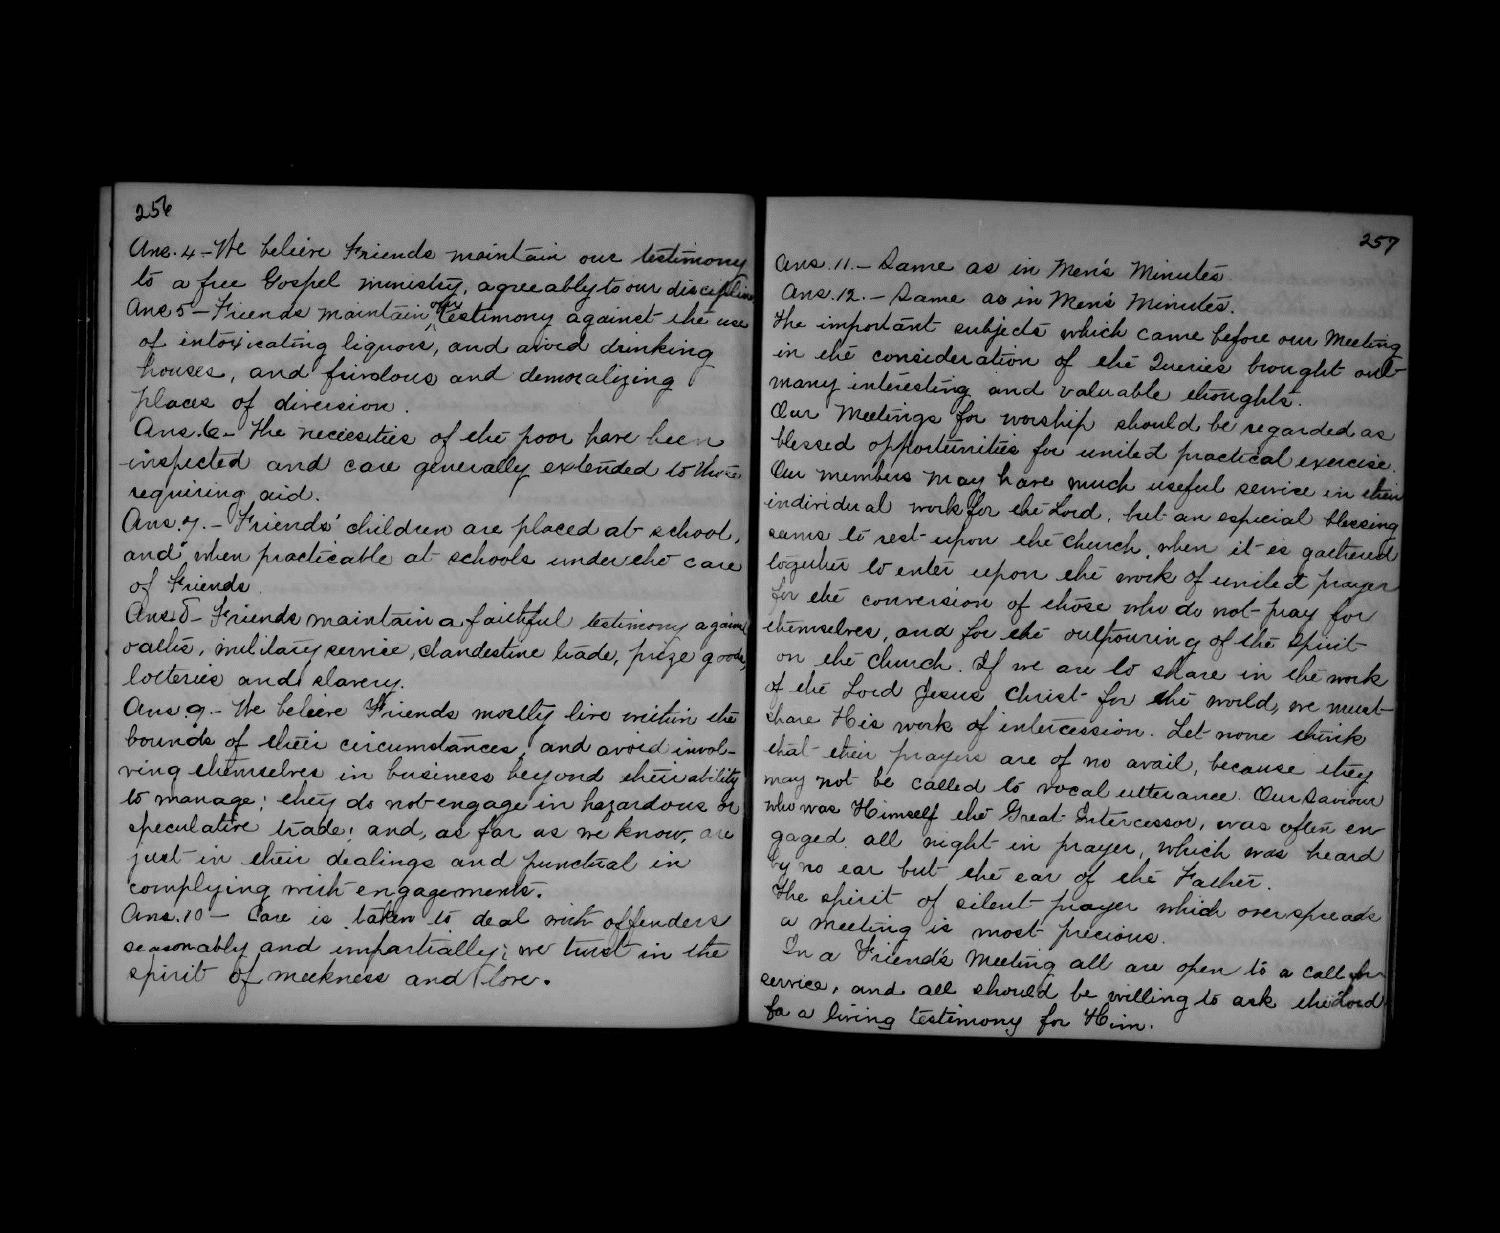 256
Ans. 4 - We believe Friends maintain our testimony
to a free Gospel ministry, agreeably to our discipline
Ans 5 - Friends maintain our testimony against the use
of intoxicating liquors, and avoid drinking
houses, and frivolous and demoralizing
places of diversion.
Ans. 6 - The necessities of the poor have been
inspected and care generally extended to those
requiring aid.
Ans. 7. - Friends' children are placed at school,
and when practicable at schools under the care
of Friends
Ans. 8 - Friends maintain a faithful testimony against
oaths, military service, clandestine trade, prize goods,
lotteries and slavery.
Ans. 9. - We believe Friends mostly live within the
bounds of their circumstances, and avoid invol-
ving themselves in business beyond their ability
to manage; they do not engage in hazardous or
speculative trade; and, as far as we know, are
just in their dealings and punctual in
complying with engagements.
Ans. 10 - Care is taken to deal with offenders
seasonably and impartially; we trust in the
spirit of meekness and love.
257
Ans. 11. - Same as in Men's Minutes
Ans. 12. - Same as in Men's Minutes.
The important subjects which came before our Meeting
in the consideration of the Queries brought out
many interesting and valuable thoughts.
Our Meetings for worship should be regarded as
blessed opportunities for united practical exercise.
Our members may have much useful service in their
individual work for the Lord, but an especial blessing
sams to rest upon the church, when it is gathered
together to enter upon the work of united prayer
for the conversion of those who do not pray for
themselves, and for the outpouring of the Spirit
on the church. If we are to share in the work
of the Lord Jesus Christ for the world, we must
share His work of intercession. Let none think
that their prayers are of no avail, because they
may not be called to vocal utterance. Our Saviour
who was Himself the Great Intercessor, was often en
gaged all night in prayer, which was heard
by no ear but the ear of the Father.
The spirit of silent prayer which overspreads
a meeting is most precious.
In a Friend's Meeting all are open to a call for
service, and all should be willing to ask the Lord
fo a living testimony for Him.